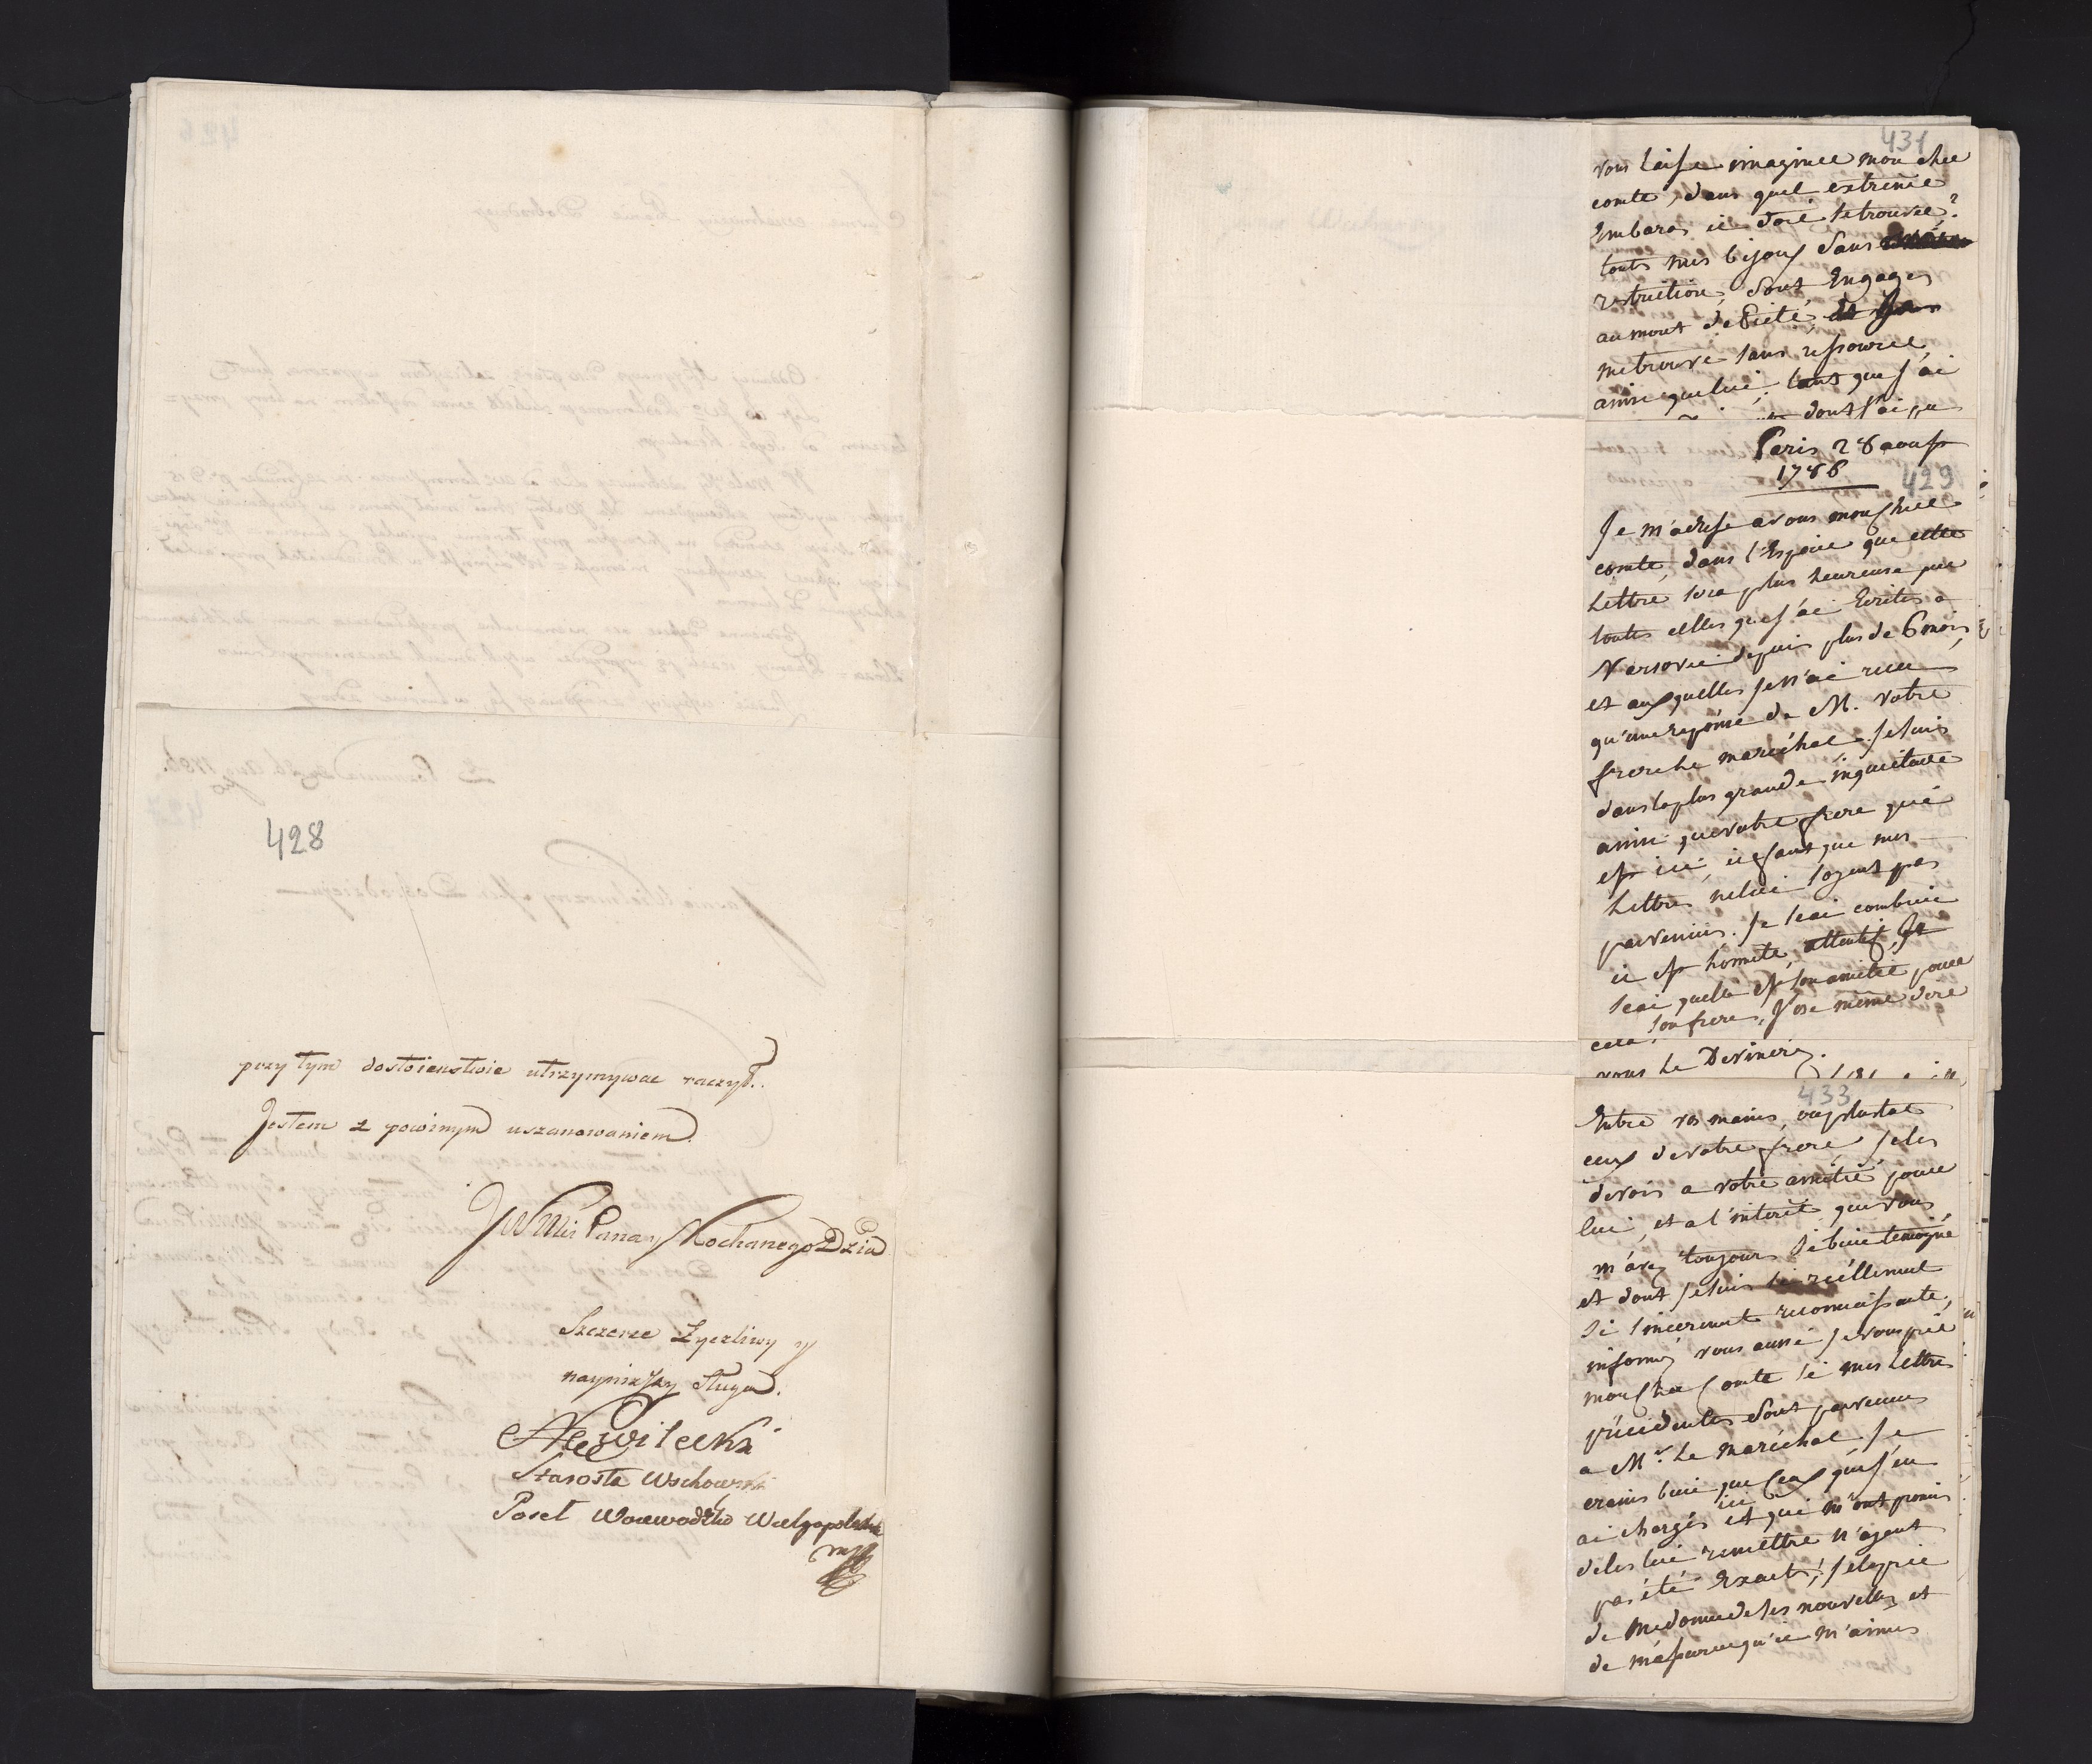 428
przy tym dostoienstwie utrzymywac raczył.
Jestem z powinnym uszanowaniem.
JW Mci Pana y Kochanego Dzia
Szczerze Zyczliwy y
nayniższy Sługa.
Kwilecki
Starosta Wschowski
Poseł Woiewodztw Wielgopolskich
mp
431
vous laisse imaginer mon cher
comte, dans quel extreme
Embaras il doit se trouver?
touts mes bijoux sans
restriction, sont Engages
au mont de Pieté,
me trouve sans ressource,
ainsi que lui, tant que j'ai
dont j'ai pu
Paris 28 aoust
1786
429
Je m'adresse a vous mon cher
comte, dans l'Espoire que cette
Lettre sera plus heureuse que
toutes celles que j'ai Ecrites a
Varsovie depuis plus de 6 mois,
et aux quelles je n'ai recu
qu'une reponse de M. votre
frere le marechal. je suis
dans la plus grande inquietude
ainsi que votre frere qui
est ici, il faut que mes
Lettres ne lui soyent pas
parvenues. Je scai combien
il est honnete, attentif, Je
scai quelle est son amitie pour
son frere, j'ose même dire
vous Le Devinerez.
433
Entre vos mains, ou plustot
ceux de votre frere, je les
devois a votre amitié pour
lui, et a l'interêt que vous
m'avez toujours si bien temoigné
et dont je suis si reéllement
si sincerement reconnoissante,
informez vous aussi je vous prie
mon cher Comte si mes Lettres
précédentes sont parvenues
a Mr. Le maréchal je
crains bien que ceux que j'en
ai chargés ici et qui m'ont promis
de les lui remettre n'ayent
pas été Exacts; je le prie
de me donner de ses nouvelles et
de m'assurer qu'il m'aimes